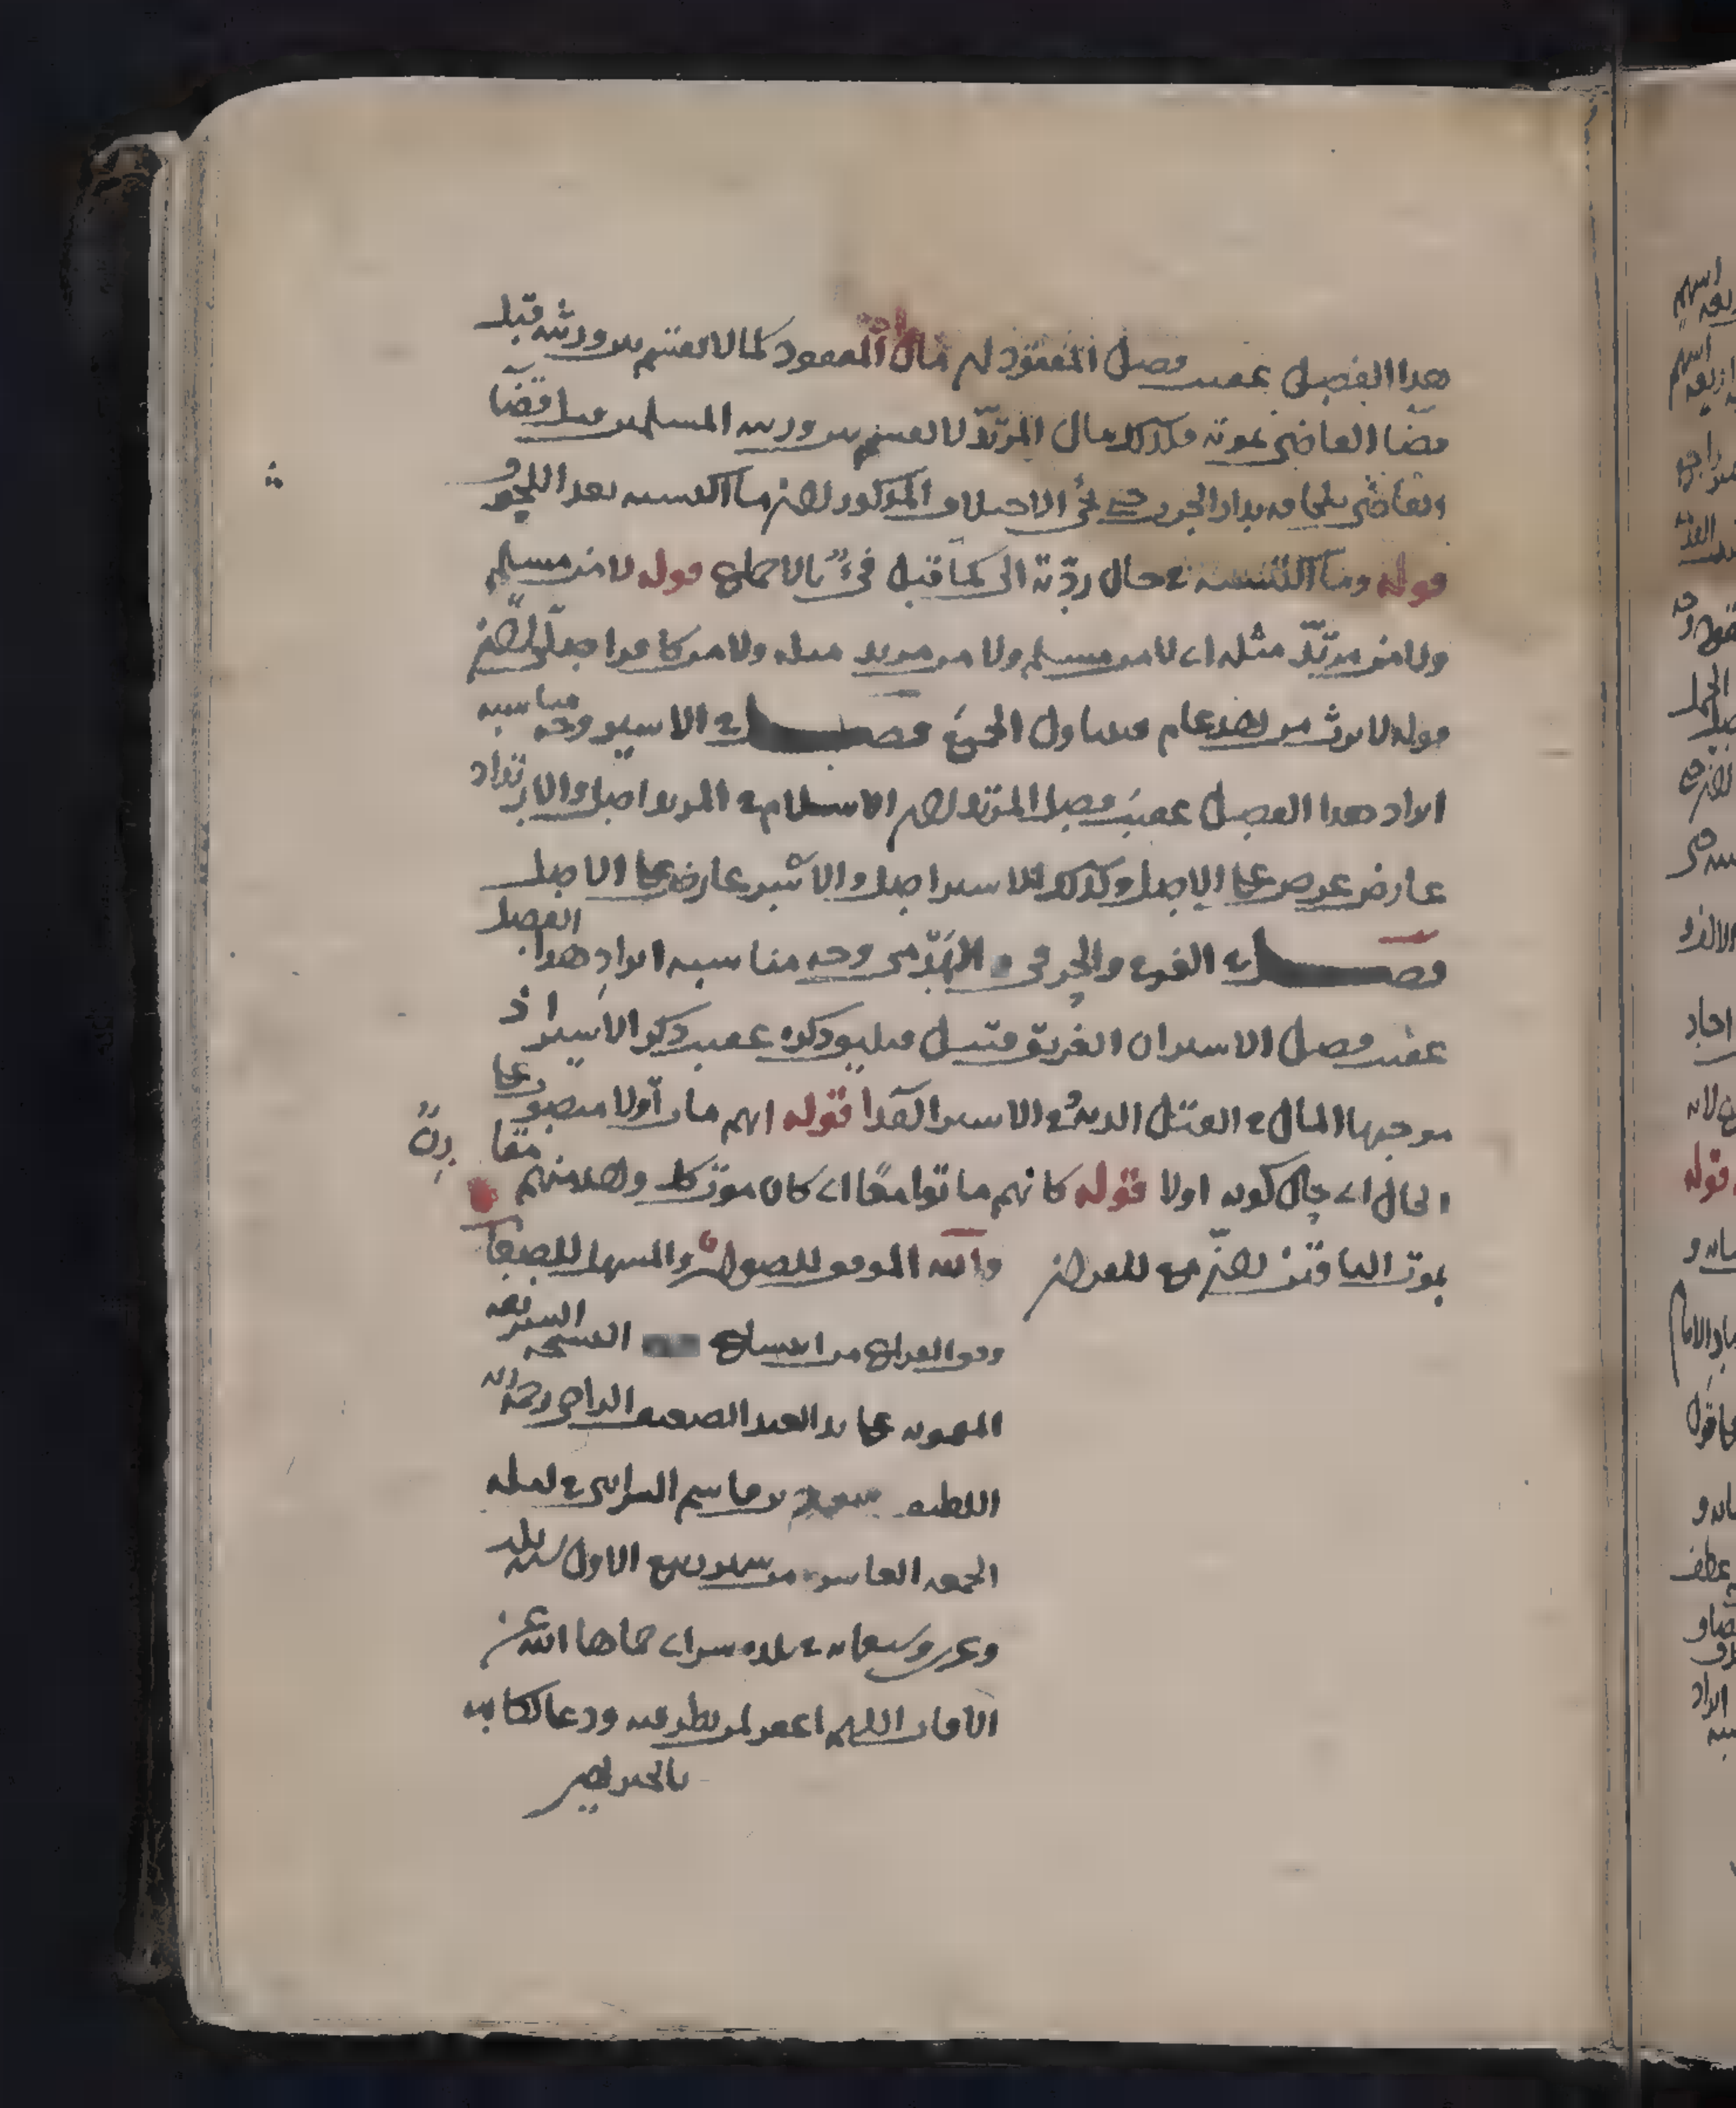 هذا الفصل عقيب فصل المفقود لان مال المفقود كما لا يقسم بين ورثته قبل
قضا القاضى بموته فكذلك مال المرتد لا يقسم بين ورثته المسلمين قبل قضآ
القاضى بلحاقه بدار الحرب حتى الاختلاف المذكور لان ما اكتسبه بعد اللحوق
قوله وما اكتسبته فى حال ردّته الى كما قبل فىء بالاجماع قوله لا من مسلم
ولا من مرتدّ مثله اى لا من مسلم ولا من مرتد مثله ولا من كافر اصلى لان
قوله لا يرث من احد عام فيتناول الجميع فصل فى الاسير وجه مناسبه
ايراد هذا الفصل عقيب فصل المرتد لان الاسلام فى المرتد اصل والارتداد
عارض عرض على الاصل وكذلك الاسير اصل والاسر عارض على الاصل
فصل فى الغرقى والحرقى والهدمى وجه مناسبه ايراد هذا الفصل
عقيب فصل الاسير ان الغريق قتيل فيليق ذكره عقيب ذكر الاسير اذ
موجبها المال فى القتل الدية وفى الاسير الفدا قوله ايهم مات اولا منصوب على
الحال اى حال كونه اولا قوله كانهم ماتوا معًا اى كان موت كل واحد منهم مقارنً
بموت الباقين لان مع للقران والله الموفق للصواب والمسهل للصعاب
وقع الفراغ من انتساخ النسخه الشريفه
الميمونه على يد العبد الضعيف الراجى رحمة الله
اللطيف بن قاسم السرايى فى ليلة
الجمعه العاشره من شهر ربيع الاول سنه ثلاث
وسبعمايه فى بلده سراى حماها الله عن
الافات اللهم اغفر لمن نظر فيه ودعا لكاتبه
بالخير امين